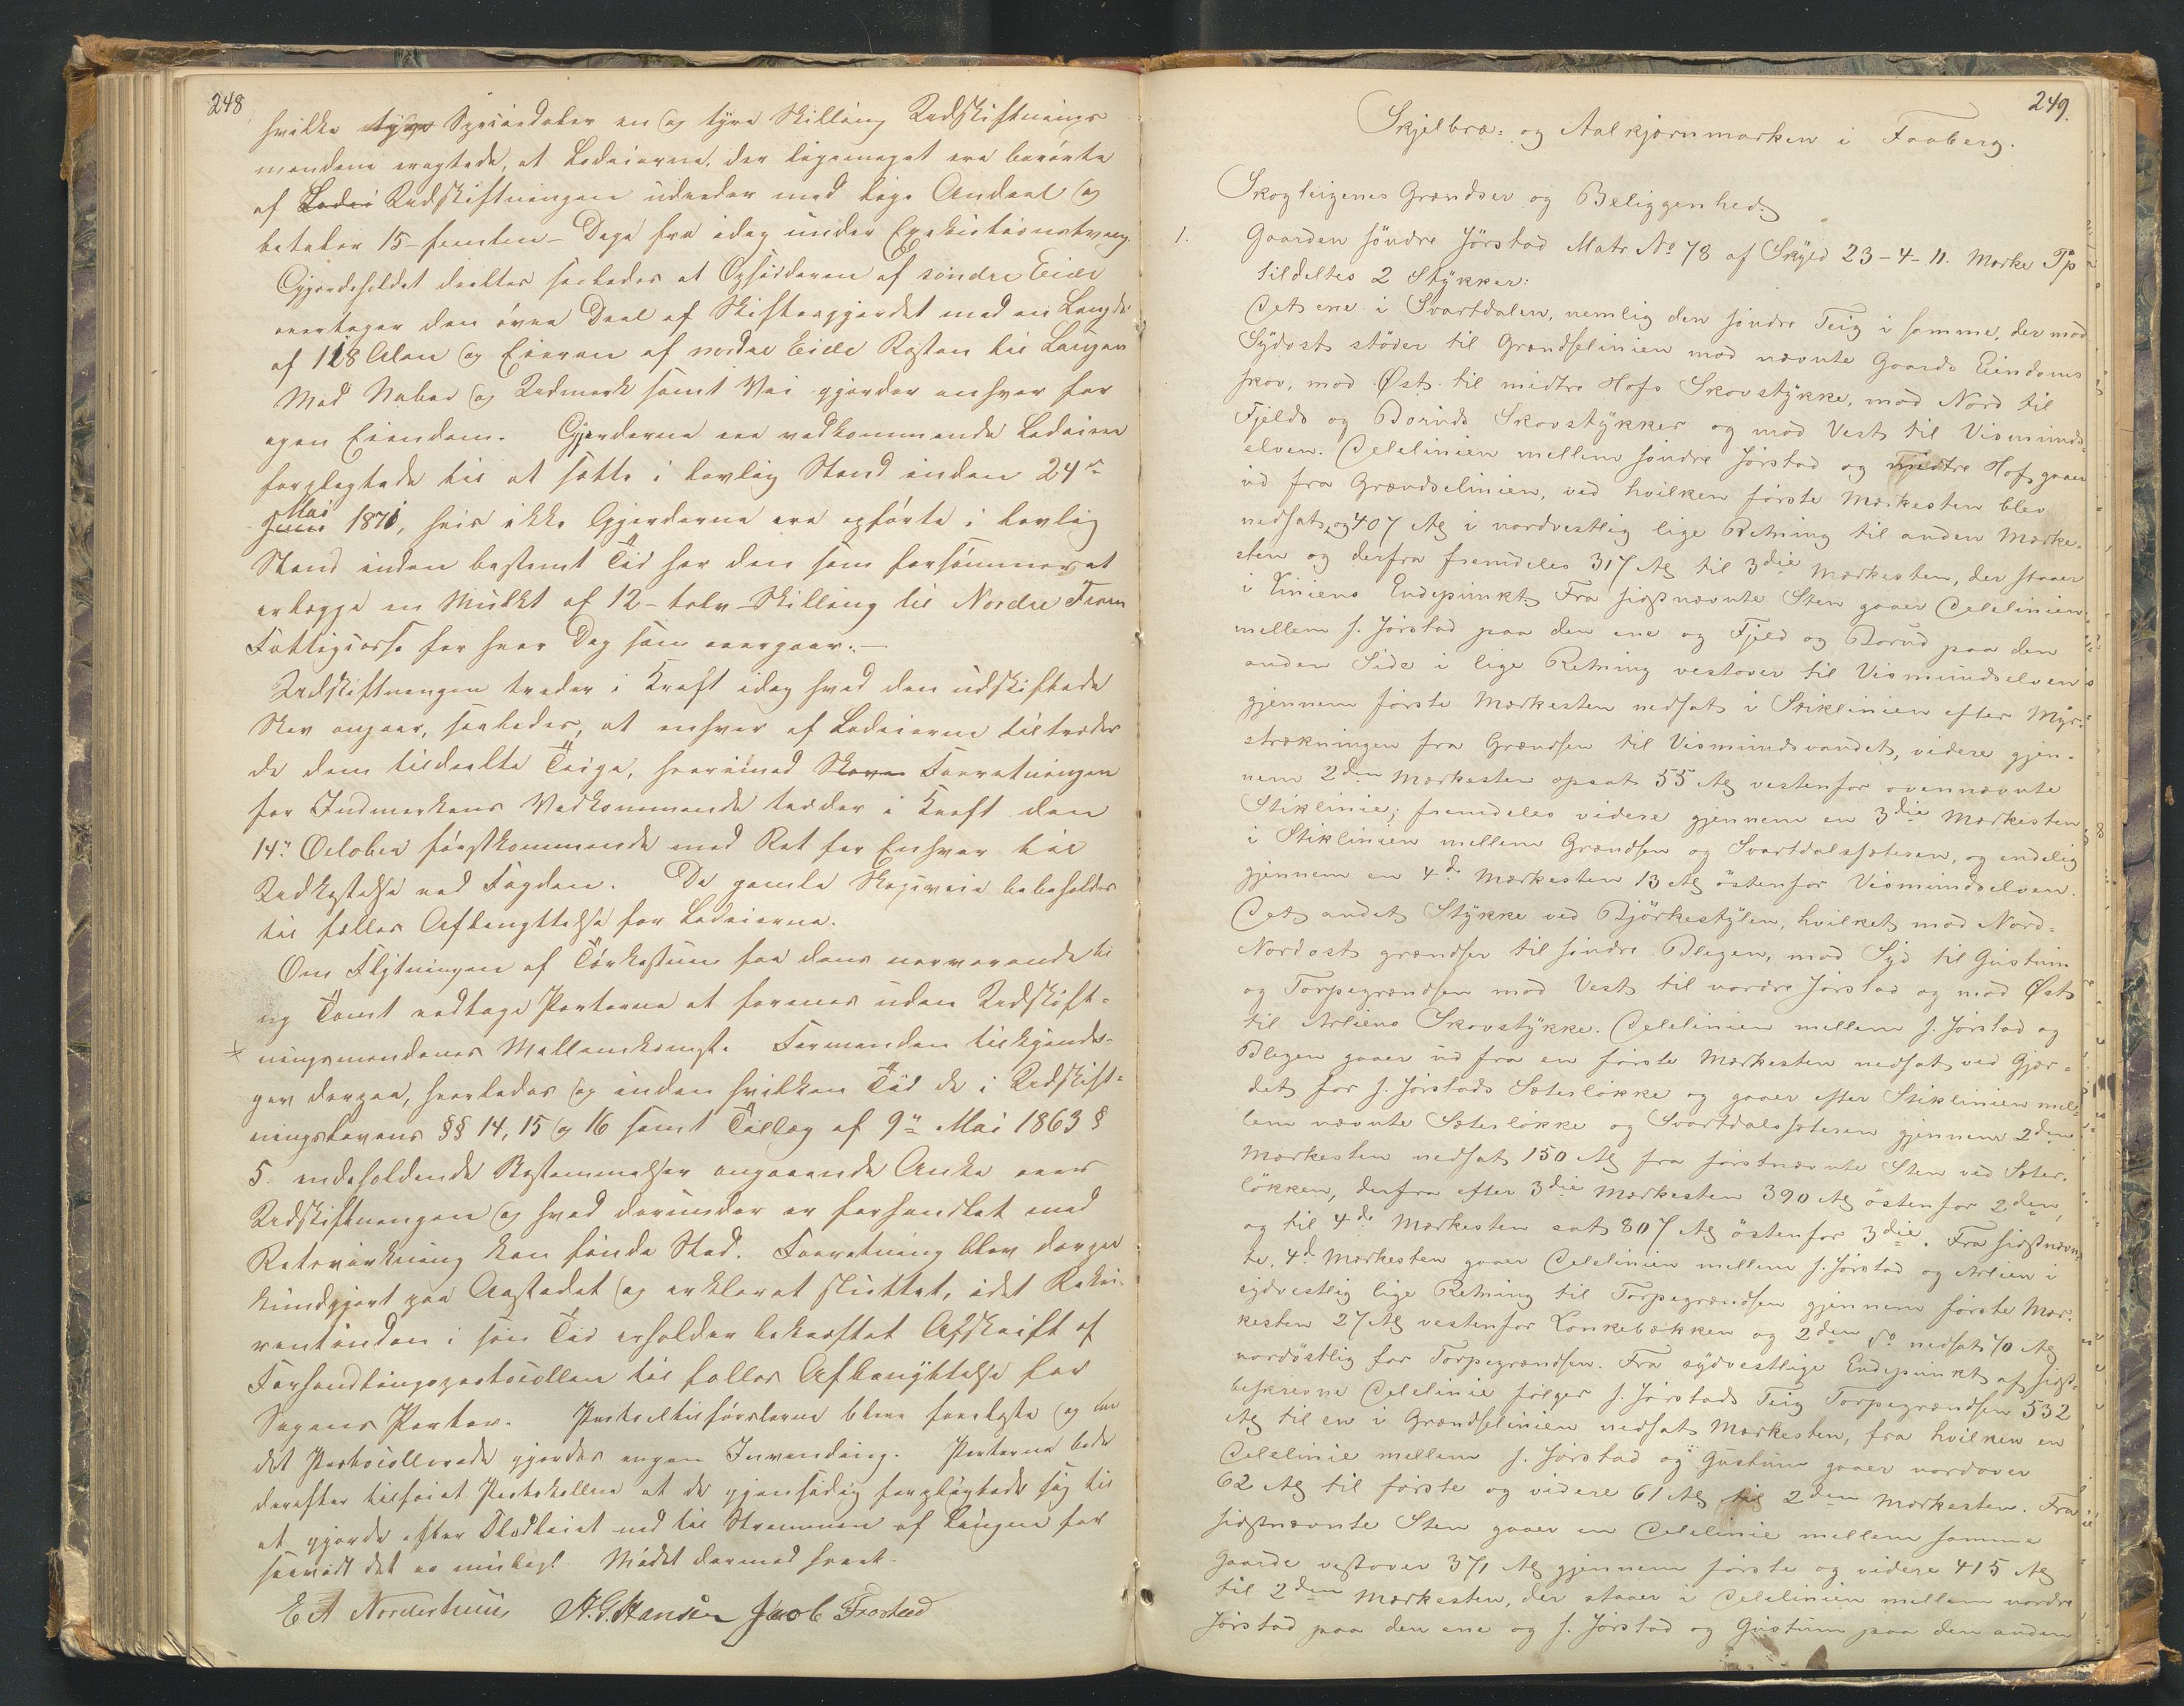 248
hvilke tyve Speciedaler en og tyve Skilling Udskiftnings
mændene eragtede, at Lodeierne, der ligemeget ere berørte
af Lodei Udskiftningen udreder med lige Andeel og
betaler 15 - femten - Dage fra idag under Exekutionstvang.
Gjerdeholdet deeltes saaledes at Opsidderen af søndre Eide
overtager den øvre Deel af Skiftesgjerdet med en Længde
af 118 Alen og Eieren af nordre Eide Resten til Laugen
Mod Naboer og Udmark samt Vei gjerder enhver for
egen Eiendom. Gjerderne ere vedkommende Lodeiere
forpligtede til at sætte i lovlig Stand inden 24de
Juni Mai 1871, hvis ikke Gjerderne ere opførte i lovlig
Stand inden bestemt Tid har den som forsømmer at
erlægge en Mulkt af 12 - tolv - Skilling til Nordre Frons
Fattigcasse for hver Dag som overgaar. —
Udskiftningen træder i Kraft idag hvad den udskiftede
Skov angaar, saaledes, at enhver af Lodeierne tiltræder
de dem tildeelte Teige, hvorimod Skoven Forretningen
for Indmarkens Vedkommende træder i Kraft den
14de October førstkommende med Ret for Enhver til
Udkastelse ved Fogden. De gamle Skovveie beholdes
til fælles Afbenyttelse for Lodeierne.
Om Flytningen af Tørkestuen fra dens nærværende til
ny Tomt vedtoge Parterne at forenes uden Udskift-
ningsmændenes Mellemkomst. Formanden tilkjendes-
gav derpaa, hvorledes og inden hvilken Tid de i Udskift-
ningslovens §§ 14, 15 og 16 samt Tillæg af 9de Mai 1863 §
5 indeholdende Bestemmelser angaaende Anke over
Udskiftningen og hvad derunder er forhandlet med
Retsvirkning kan finde Sted. Forretning blev derpaa
kundgjort paa Aastedet og erklæret sluttet, idet Rekvi-
rentinden i sin Tid erholder bekræftet Afskrift af
Forhandlingsprotocollen til fælles Afbenyttelse for
Sagens Parter. Protocoltilførslerne bleve forelæste og mod
det Protocollerede gjordes ingen Indvending. Parterne lode
derefter tilføiet Protokollen at de gjensidig forpligtede sig til
at gjerde efter Deelet ned til Strømmen af Laugen for
saavidt det er muligt. Mødet dermed hævet.
E A Norderhuus H. G. Hansen Jacob Frostad
249.
Skjelbræ- og Aalkjærnmarken i Faaberg.
Skogteigenes Grændser og Beliggenhed.
1. Gaarden søndre Jørstad Matr No 78 af Skyld 23-4-11. Mærke Tp
tildeltes 2 Stykker:
Det ene i Svartdalen, nemlig den søndre Teig i samme, der mod
Sydost støder til Grændselinien mod nævnte Gaards Eiendoms
skov, mod Øst til midtre Hofs Skovstykke, mod Nord til
Fjelds og Boruds Skovstykker og mod Vest til Vismunds
elven. Delelinien mellem søndre Jørstad og midtre Hof gaaer
ud fra Grændselinien, ved hvilken første Mærkesten blev
nedsat, og 407 Al i nordvestlig lige Retning til anden Mærke-
sten og derfra fremdeles 317 Al til 3die Mærkesten, der staaer
i Liniens Endepunkt. Fra sidstnævnte Sten gaaer Delelinien
mellem s. Jørstad paa den ene og Fjeld og Borud paa den
anden Side i lige Retning vestover til Vismundselven
gjennem første Mærkesten nedsat i Stiklinien efter Myr-
strækningen fra Grændsen til Vismundsvandet, videre gjen-
nem 2den Mærkesten opsat 55 Al vestenfor ovennævnte
Stiklinie; fremdeles videre gjennem en 3die Mærkesten
i Stiklinien mellem Grændsen og Svartdalssæteren, og endelig
gjennem en 4de Mærkesten 13 Al østenfor Vismundselven.
Det andet Stykke ved Bjørkestylen, hvilket mod Nord-
Nordost grændser til søndre Blegen, mod Syd til Gustum
og Torpegrændsen mod Vest til nordre Jørstad og mod Øst
til Arliens Skovstykke. Delelinien mellem s. Jørstad og
Blegen gaaer ud fra en første Mærkesten nedsat ved Gjær-
det for s. Jørstads Sæterløkke og gaaer efter Stiklinien mel-
lem nævnte Sæterløkke og Svartdalssæteren gjennem 2den
Mærkesten nedsat 150 Al fra førstnævnte Sten ved Sæter-
løkken, derfra efter 3die Mærkesten 390 Al østenfor 2den,
og til 4de Mærkesten sat 807 Al østenfor 3die. Fra sidstnævn-
te, 4d Mærkesten gaaer Delelinien mellem s. Jørstad og Arlien i
sydvestlig lige Retning til Torpegrændsen gjennem første Mær-
kesten 27 Al vestenfor Lonkebækken og 2den do nedsat 70 Al
nordøstlig for Torpegrændsen. Fra sydvestlige Endepunkt af sidst-
beskrevne Delelinie følger s. Jørstads Teig Torpegrændsen 532
Al til en i Grændselinien nedsat Mærkesten, fra hvilken en
Delelinie mellem s. Jørstad og Gustum gaaer nordover
62 Al til første og videre 61 Al til 2den Mærkesten. Fra
sidstnævnte Sten gaaer en Delelinie mellem samme
Gaarde vestover 371 Al gjennem første og videre 415 Al
til 2den Mærkesten, der staaer i Delelinien mellem nordre
Jørstad paa den ene og s. Jørstad og Gustum paa den anden